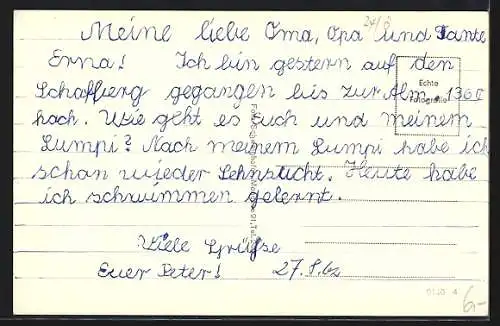 24/8
Meine liebe Oma, Opa und Tante
Erna! Ich bin gestern auf den
Schafferg gegangen bis zur Alm 1360
hoch. Wie geht es Euch und meinem
Lumpi? Nach meinem Lumpi habe ich
schon wieder Sehnsucht. Heute habe
ich schwimmen gelernt.
Viele Grüße
Euer Peter! 27.8.62
Echte
Fotografie
6,-